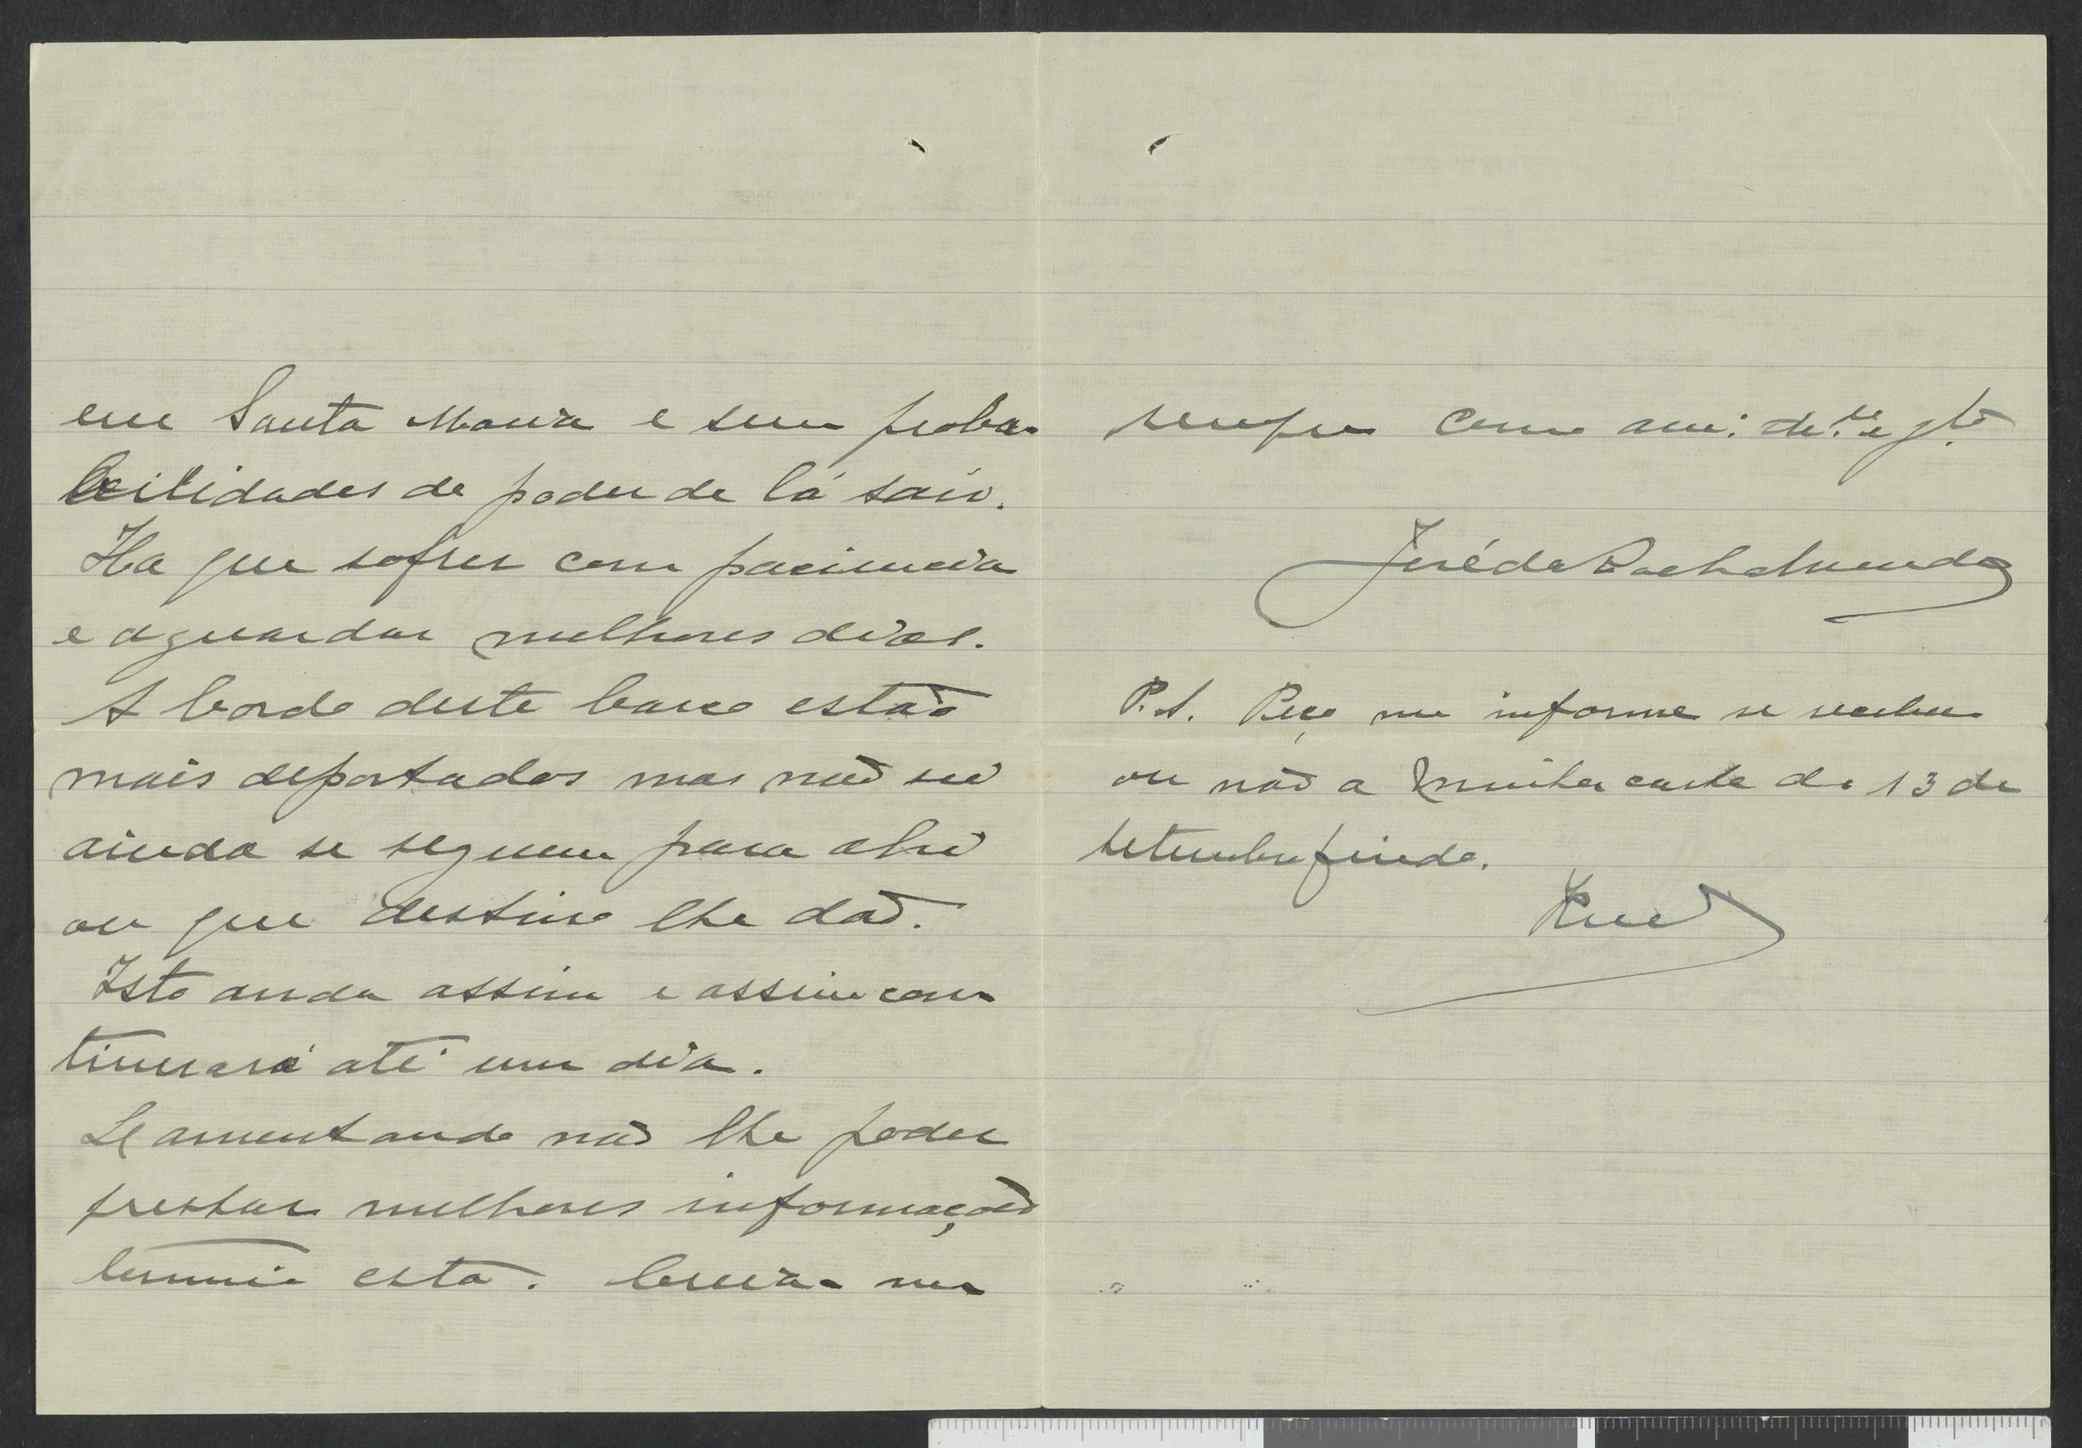 em Santa Maria e sem proba-
bilidades de poder de lá sair.
Ha que sofrer com paciencia
e aguardar melhores dias.
A bordo deste barco estaõ
mais deportados mas naõ sei
ainda se seguem para ahi
ou que destino lhe daõ.
Isto anda assim e assim con-
tinuará até um dia.
Lamentando naõ lhe poder
prestar melhores informações
termino esta. Creia-me
sempre como am.
José da Rocha
P.S. Peço me informe se recebeu
ou naõ a minha carta de 13 de
setembro findo.